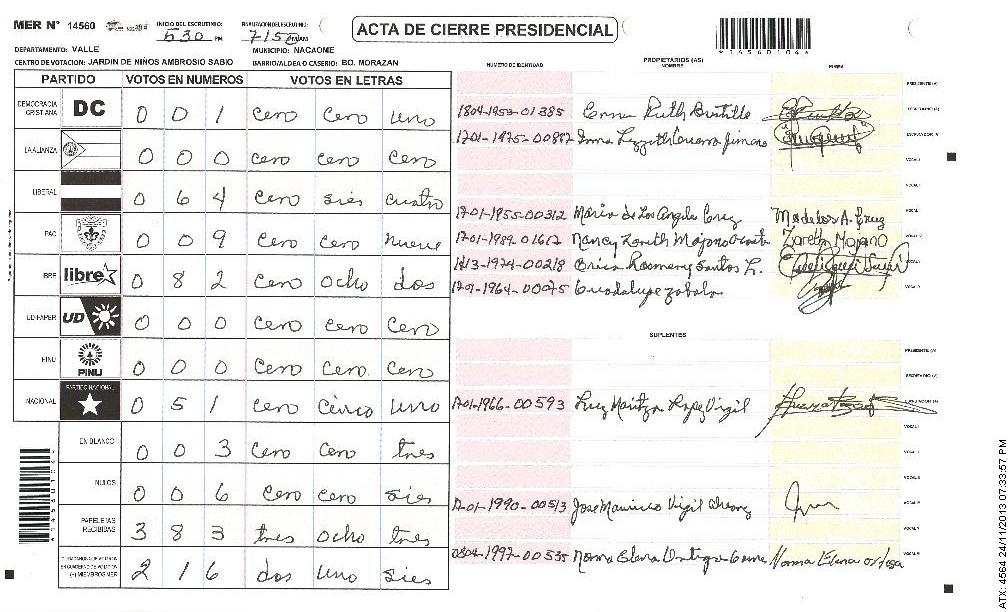 MER N° 14560
INICIO DEL ESCRUTINIO: 530 PM
FINALIZACION DEL ESCRUTINIO: 715
ACTA DE CIERRE PRESIDENCIAL
*14560104*
DEPARTAMENTO: VALLE MUNICIPIO: NACAOME
CENTRO DE VOTACION: JARDIN DE NIÑOS AMBROSIO SABIO BARRIO/ALDEA O CASERIO: BO. MORAZAN
PARTIDO VOTOS EN NUMEROS VOTOS EN LETRAS
DEMOCRACIA CRISTIANA DC 0 0 1 cero cero uno
LA ALIANZA 0 0 0 cero cero cero
LIBERAL 0 6 4 cero sies cuatro
PAC 0 0 9 cero cero nueve
libre 0 8 2 cero ocho dos
UD FAPER UD 0 0 0 cero cero cero
PINU PINU 0 0 0 cero cero. cero
NACIONAL PARTIDO NACIONAL 0 5 1 cero cinco uno
EN BLANCO 0 0 3 cero cero tres
NULOS 0 0 6 cero cero sies
PAPELETAS RECIBIDAS 3 8 3 tres ocho tres
2 1 6 dos uno sies
NUMERO DE IDENTIDAD PROPIETARIOS (AS) NOMBRE FIRMA
PRESIDENTE (A)
1804-1959-01385 Ruth Bustillo SECRETARIO (A)
1701-1975-00887 ESCRUTADOR
VOCAL I
1701-1955-00312 Maria de Los Angeles Cruz M de los A. Cruz VOCAL
1701-1989-01617 Nancy Zoreth Mojano Zoreth Mojano VOCAL
Erica Rosmery Santos L. VOCAL
1701-1964-00075 Guadalupe zabala VOCAL
SUPLENTES
PRESIDENTE (A)
SECRETARIO (A)
1701-1966-00593 Luz Maritza Lopez Vigil
VOCAL I
VOCAL
VOCAL
1701-1990-00513 Jose Mauricio Vigil VOCAL
VOCAL
Norma Elena Norma Elena ortega VOCAL
ATX: 4564 24/11/2013 07:33:57 PM